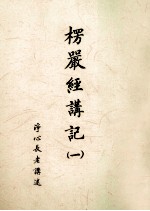 楞嚴經講記
(一)
淨心長老講述